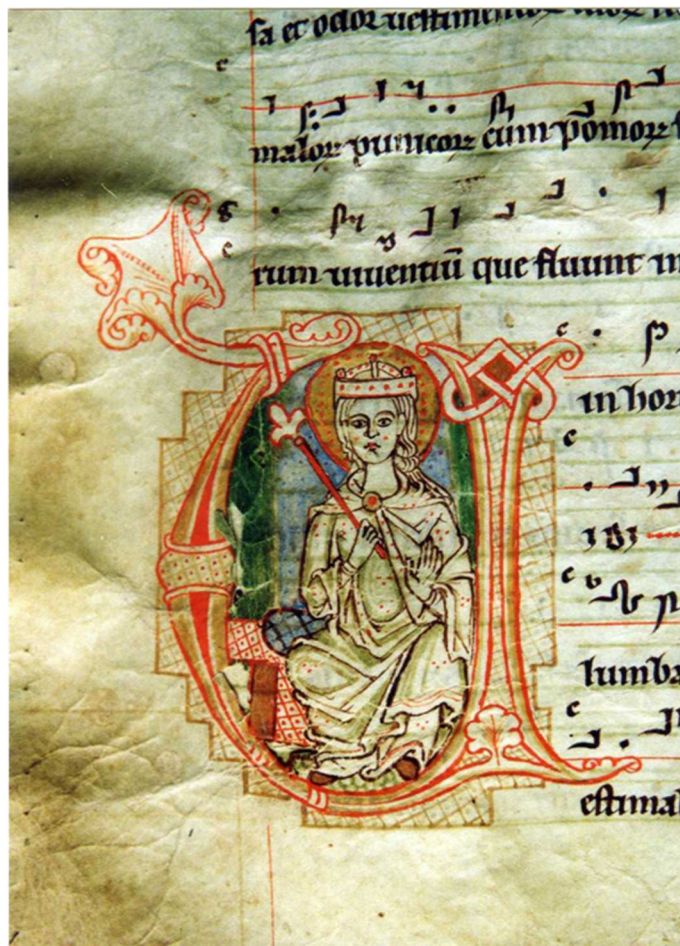 sa et odor uestimentorꝝ tuorꝝ
malorꝝ punicorꝝ cum pomorꝝ
rum uiuentiū que fluunt in
in hor
Uidi
lumba
estimab